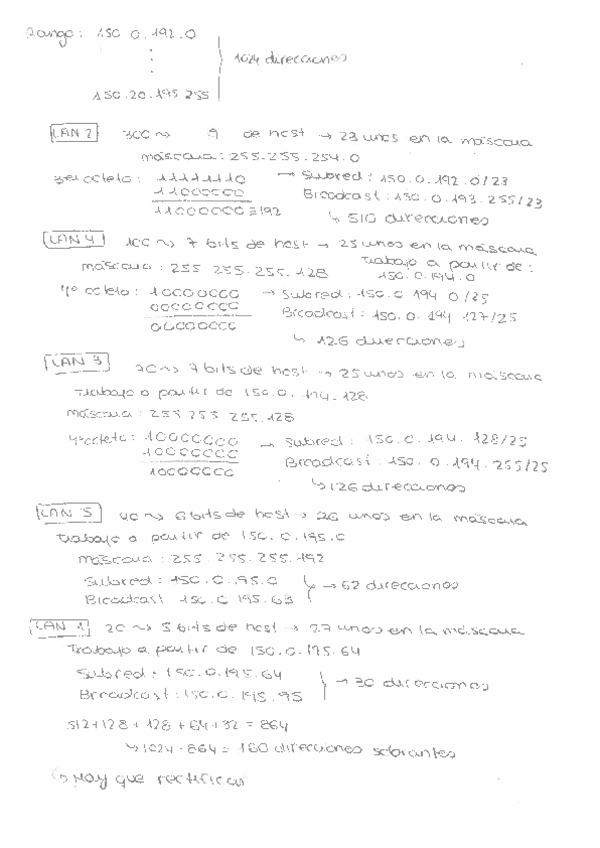 Rango: 150.0.192.0
⋮ } 1024 direcciones
150.20.195.255
LAN 2 300 ~> 9 de host → 23 unos en la máscara
máscara: 255.255.254.0
3er octeto: 11111110 → Subred: 150.0.192.0/23
11000000 Broadcast: 150.0.193.255/23
11000000 = 192 ↳ 510 direcciones
LAN 4 100 ~> 7 bits de host → 25 unos en la máscara
máscara: 255.255.255.128 Trabajo a partir de:
150.0.194.0
4º octeto: 10000000 → Subred: 150.0.194.0/25
00000000 Broadcast: 150.0.194.127/25
00000000 ↳ 126 direcciones
LAN 3 70 ~> 7 bits de host → 25 unos en la máscara
Trabajo a partir de 150.0.194.128
máscara: 255.255.255.128
4º octeto: 10000000 → Subred: 150.0.194.128/25
10000000 Broadcast: 150.0.194.255/25
10000000 ↳ 126 direcciones
LAN 5 40 ~> 6 bits de host → 26 unos en la máscara
Trabajo a partir de 150.0.195.0
máscara: 255.255.255.192
Subred: 150.0.195.0 } → 62 direcciones
Broadcast 150.0.195.63
LAN 1 20 ~> 5 bits de host → 27 unos en la máscara
Trabajo a partir de 150.0.195.64
Subred: 150.0.195.64 } → 30 direcciones
Broadcast: 150.0.195.95
512+128+128+64+32 = 864
↳ 1024-864 = 160 direcciones sobrantes
↳ Hay que rectificar